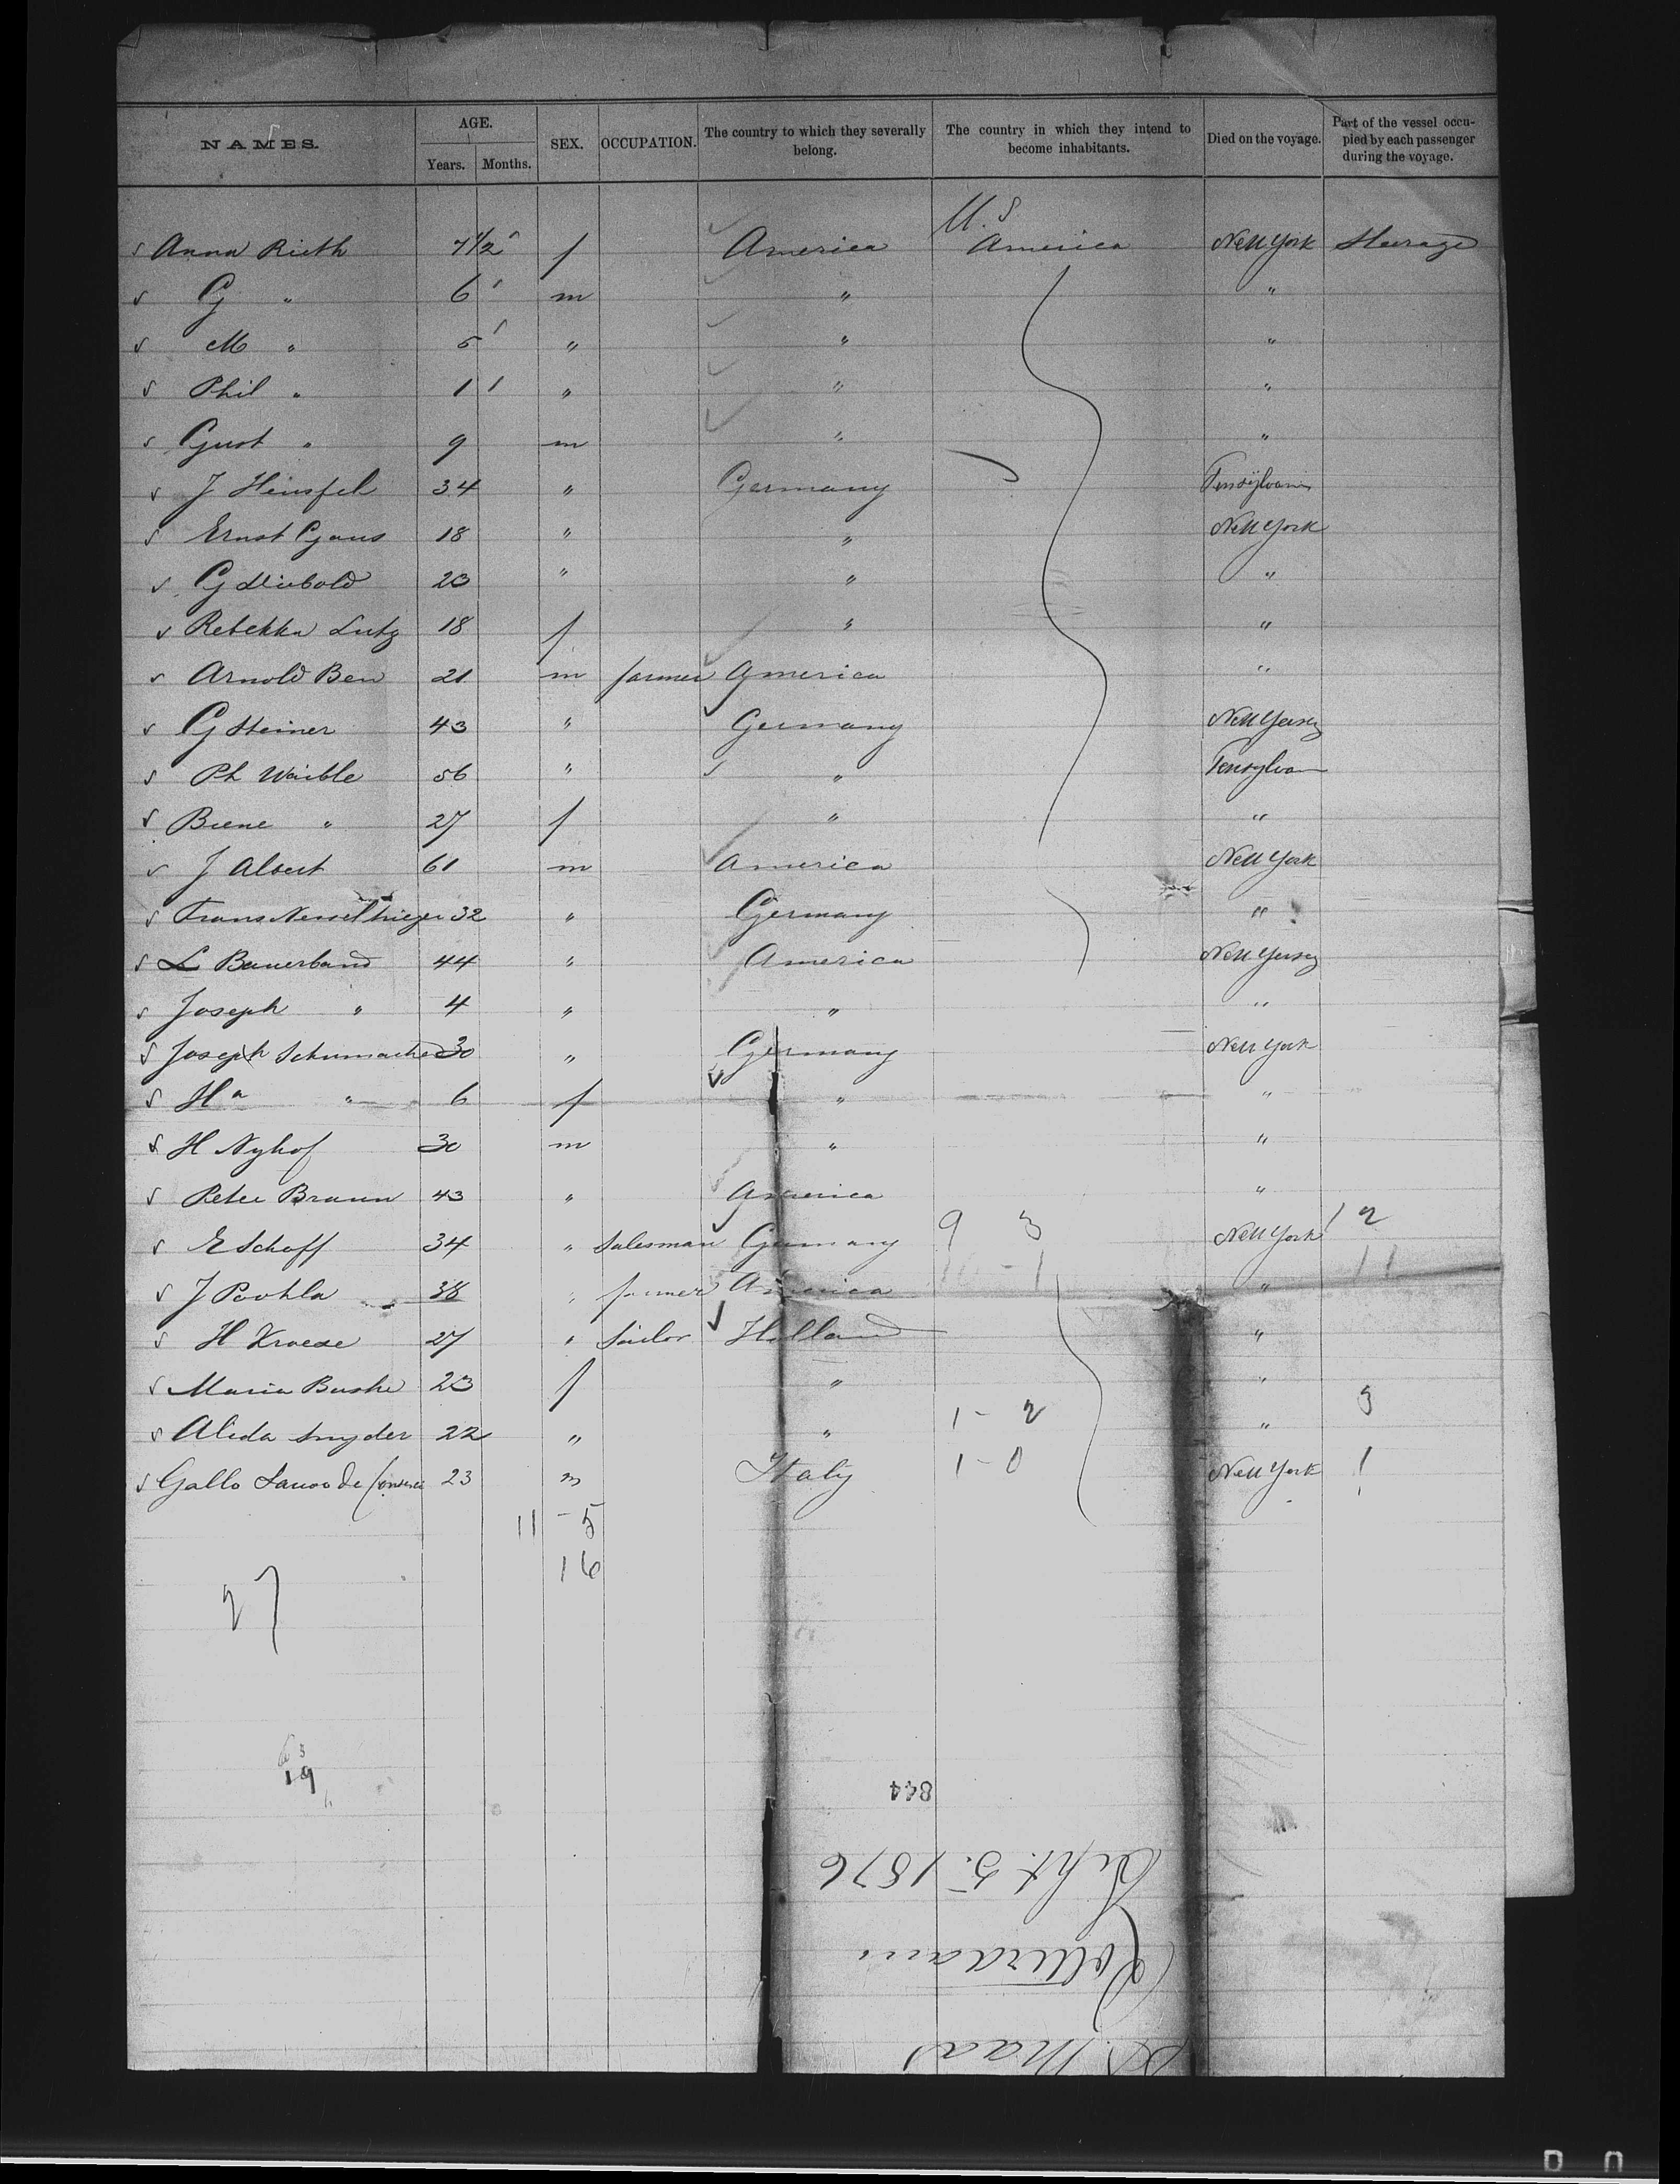 NAMES. AGE. Years. Months. SEX. OCCUPATION. The country to which they severally belong. The country in which they intend to become inhabitants. Died on the voyage. Part of the vessel occupied by each passenger during the voyage.
U.S
Anna Rieth 7 1/2 f America America New York Steerage
G " 6 m " "
M " 5 " " "
Phil " 1 " " "
Gust " 9 m " "
J 34 " Germany Pensylvania
Ernst Gaus 18 " " New York
G Diebold 23 " " "
Rebekka Lutz 18 f " "
Arnold Ben 21 m farmer America "
G Steiner 43 " Germany New Yersey
Ph Waible 56 " " Pensylvan
Biene " 27 f " "
J Albert 61 m America New York
Frans 32 " Germany "
L Bauerband 44 " America New Yersey
Joseph " 4 " " "
Joseph Schumacher 30 " Germany New York
Ha " 6 f " "
H Nyhof 30 m " "
Peter Braun 43 " America "
E Schoff 34 " Salesman Germany 9 3 New York 12
J Poohla 38 " farmer America 1 " 11
H Kroese 27 " Sailor Holland "
Maria Buske 23 f " "
Alida Snyder 22 " " 1 - 2 " 3
Gallo de 23 m Italy 1 - 0 New York 1
11 - 5
16
27
19
844
Sept. 5. 1876
Rotterdam
Maas